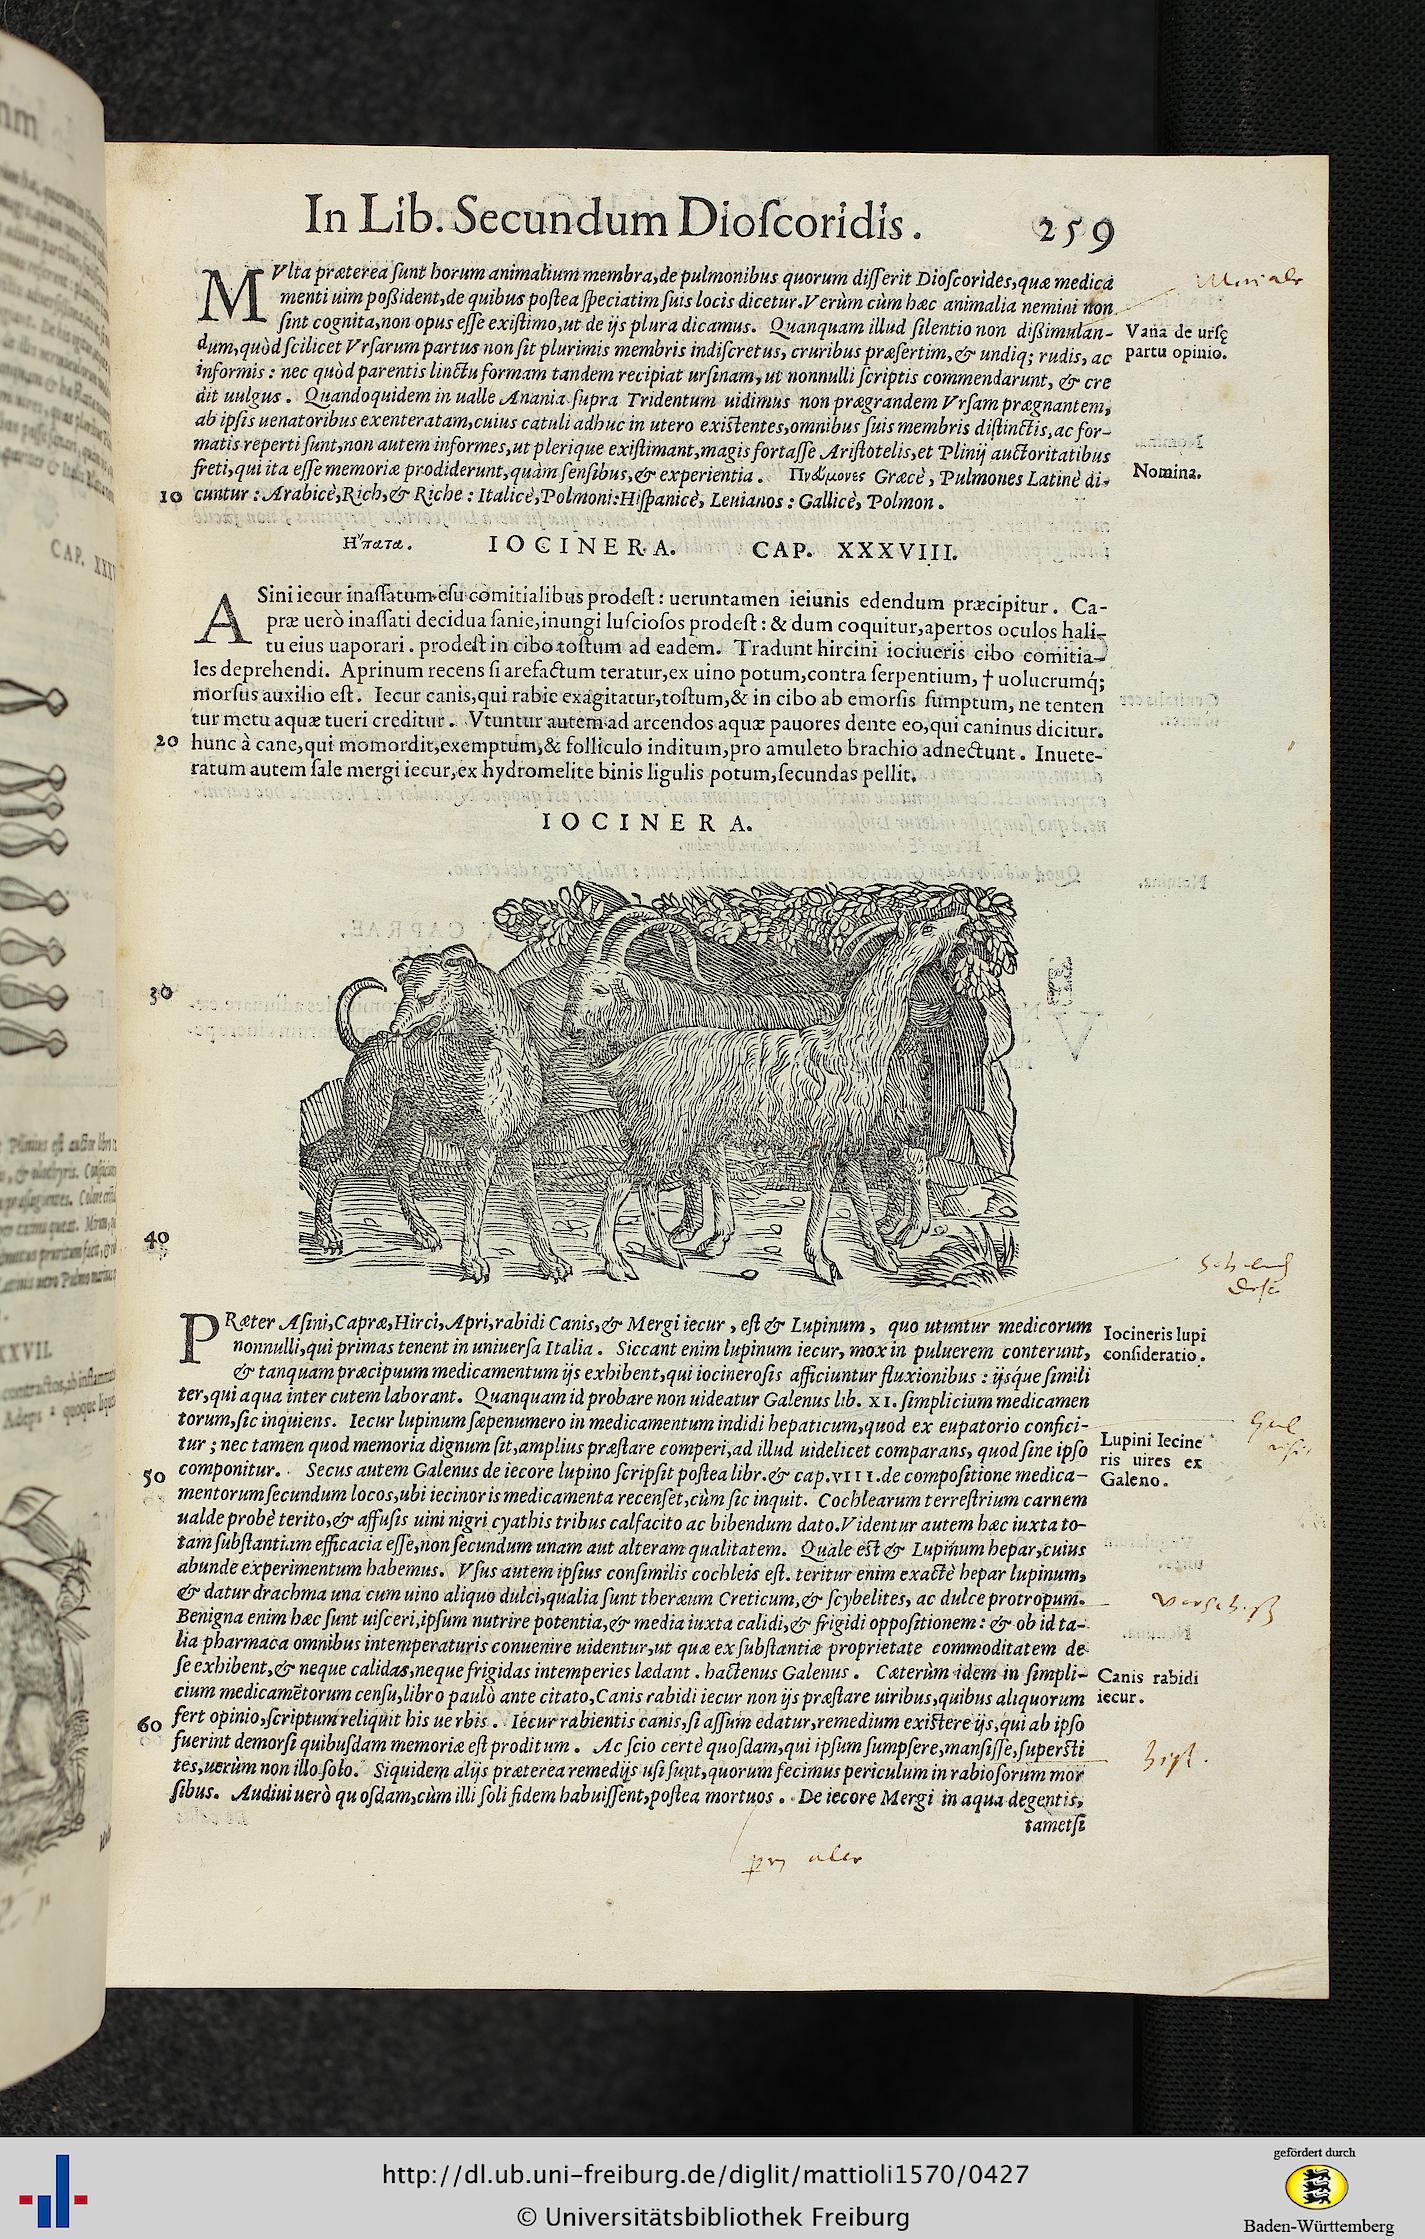 In Lib. Secundum Dioſcoridis. 259
MVlta præterea ſunt horum animalium membra, de pulmonibus quorum diſſerit Dioſcorides, quæ medica
menti uim poßident, de quibus poſtea ſpeciatim ſuis locis dicetur. Verùm cùm hæc animalia nemini non
ſint cognita, non opus eſſe exiſtimo, ut de ijs plura dicamus. Quanquam illud ſilentio non dißimulan-
dum, quòd ſcilicet Vrſarum partus non ſit plurimis membris indiſcretus, cruribus præſertim, & undiq; rudis, ac
informis: nec quòd parentis linctu formam tandem recipiat urſinam, ut nonnulli ſcriptis commendarunt, & cre
dit uulgus. Quandoquidem in ualle Anania ſupra Tridentum uidimus non prægrandem Vrſam prægnantem,
ab ipſis uenatoribus exenteratam, cuius catuli adhuc in utero exiſtentes, omnibus ſuis membris diſtinctis, ac for-
matis reperti ſunt, non autem informes, ut plerique exiſtimant, magis fortaſſe Ariſtotelis, et Plinij auctoritatibus
freti, qui ita eſſe memoriæ prodiderunt, quàm ſenſibus, & experientia. Πνεύμονες Græcè, Pulmones Latinè di-
10 cuntur: Arabicè, Rich, & Riche: Italicè, Polmoni: Hiſpanicè, Leuianos: Gallicè, Polmon.
Vana de urſę
partu opinio.
Nomina.
Η῞πατα. IOCINERA. CAP. XXXVIII.
ASini iecur inaſſatum eſu comitialibus prodeſt: ueruntamen ieiunis edendum præcipitur. Ca-
præ uerò inaſſati decidua ſanie, inungi luſcioſos prodeſt: & dum coquitur, apertos oculos hali-
tu eius uaporari. prodeſt in cibo toſtum ad eadem. Tradunt hircini iocineris cibo comitia-
les deprehendi. Aprinum recens ſi arefactum teratur, ex uino potum, contra ſerpentium, † uolucrumq́;
morſus auxilio eſt. Iecur canis, qui rabie exagitatur, toſtum, & in cibo ab emorſis ſumptum, ne tenten
tur metu aquæ tueri creditur. Vtuntur autem ad arcendos aquæ pauores dente eo, qui caninus dicitur.
20 hunc à cane, qui momordit, exemptum, & folliculo inditum, pro amuleto brachio adnectunt. Inuete-
ratum autem ſale mergi iecur, ex hydromelite binis ligulis potum, ſecundas pellit.
IOCINERA.
30
40
PRæter Aſini, Capræ, Hirci, Apri, rabidi Canis, & Mergi iecur, eſt & Lupinum, quo utuntur medicorum
nonnulli, qui primas tenent in uniuerſa Italia. Siccant enim lupinum iecur, mox in puluerem conterunt,
& tanquam præcipuum medicamentum ijs exhibent, qui iocineroſis afficiuntur fluxionibus: ijsq́ue ſimili
ter, qui aqua inter cutem laborant. Quanquam id probare non uideatur Galenus lib. XI. ſimplicium medicamen
torum, ſic inquiens. Iecur lupinum ſæpenumero in medicamentum indidi hepaticum, quod ex eupatorio confici-
tur; nec tamen quod memoria dignum ſit, amplius præſtare comperi, ad illud uidelicet comparans, quod ſine ipſo
50 componitur. Secus autem Galenus de iecore lupino ſcripſit poſtea libr. & cap. VIII. de compoſitione medica-
mentorum ſecundum locos, ubi iecinoris medicamenta recenſet, cùm ſic inquit. Cochlearum terreſtrium carnem
ualde probè terito, & affuſis uini nigri cyathis tribus calfacito ac bibendum dato. Videntur autem hæc iuxta to-
tam ſubſtantiam efficacia eſſe, non ſecundum unam aut alteram qualitatem. Quale eſt & Lupinum hepar, cuius
abunde experimentum habemus. Vſus autem ipſius conſimilis cochleis eſt. teritur enim exactè hepar lupinum,
& datur drachma una cum uino aliquo dulci, qualia ſunt theræum Creticum, & ſcybelites, ac dulce protropum.
Benigna enim hæc ſunt uiſceri, ipſum nutrire potentia, & media iuxta calidi, & frigidi oppoſitionem: & ob id ta-
lia pharmaca omnibus intemperaturis conuenire uidentur, ut quæ ex ſubſtantiæ proprietate commoditatem de
ſe exhibent, & neque calidas, neque frigidas intemperies lædant. hactenus Galenus. Cæterùm idem in ſimpli-
cium medicamētorum cenſu, libro paulò ante citato, Canis rabidi iecur non ijs præſtare uiribus, quibus aliquorum
60 fert opinio, ſcriptum reliquit his uerbis. Iecur rabientis canis, ſi aſſum edatur, remedium exiſtere ijs, qui ab ipſo
fuerint demorſi quibuſdam memoriæ eſt proditum. Ac ſcio certè quoſdam, qui ipſum ſumpſere, manſiſſe, ſuperſti
tes, uerùm non illo ſolo. Siquidem alijs præterea remedijs uſi ſunt, quorum fecimus periculum in rabioſorum mor
ſibus. Audiui uerò quoſdam, cùm illi ſoli fidem habuiſſent, poſtea mortuos. De iecore Mergi in aqua degentis,
tametſi
Iocineris lupi
conſideratio.
Lupini Iecine
ris uires ex
Galeno.
Canis rabidi
iecur.
CAP. XXXV
XXVII.
http://dl.ub.uni-freiburg.de/diglit/mattioli1570/0427
© Universitätsbibliothek Freiburg
gefördert durch
Baden-Württemberg